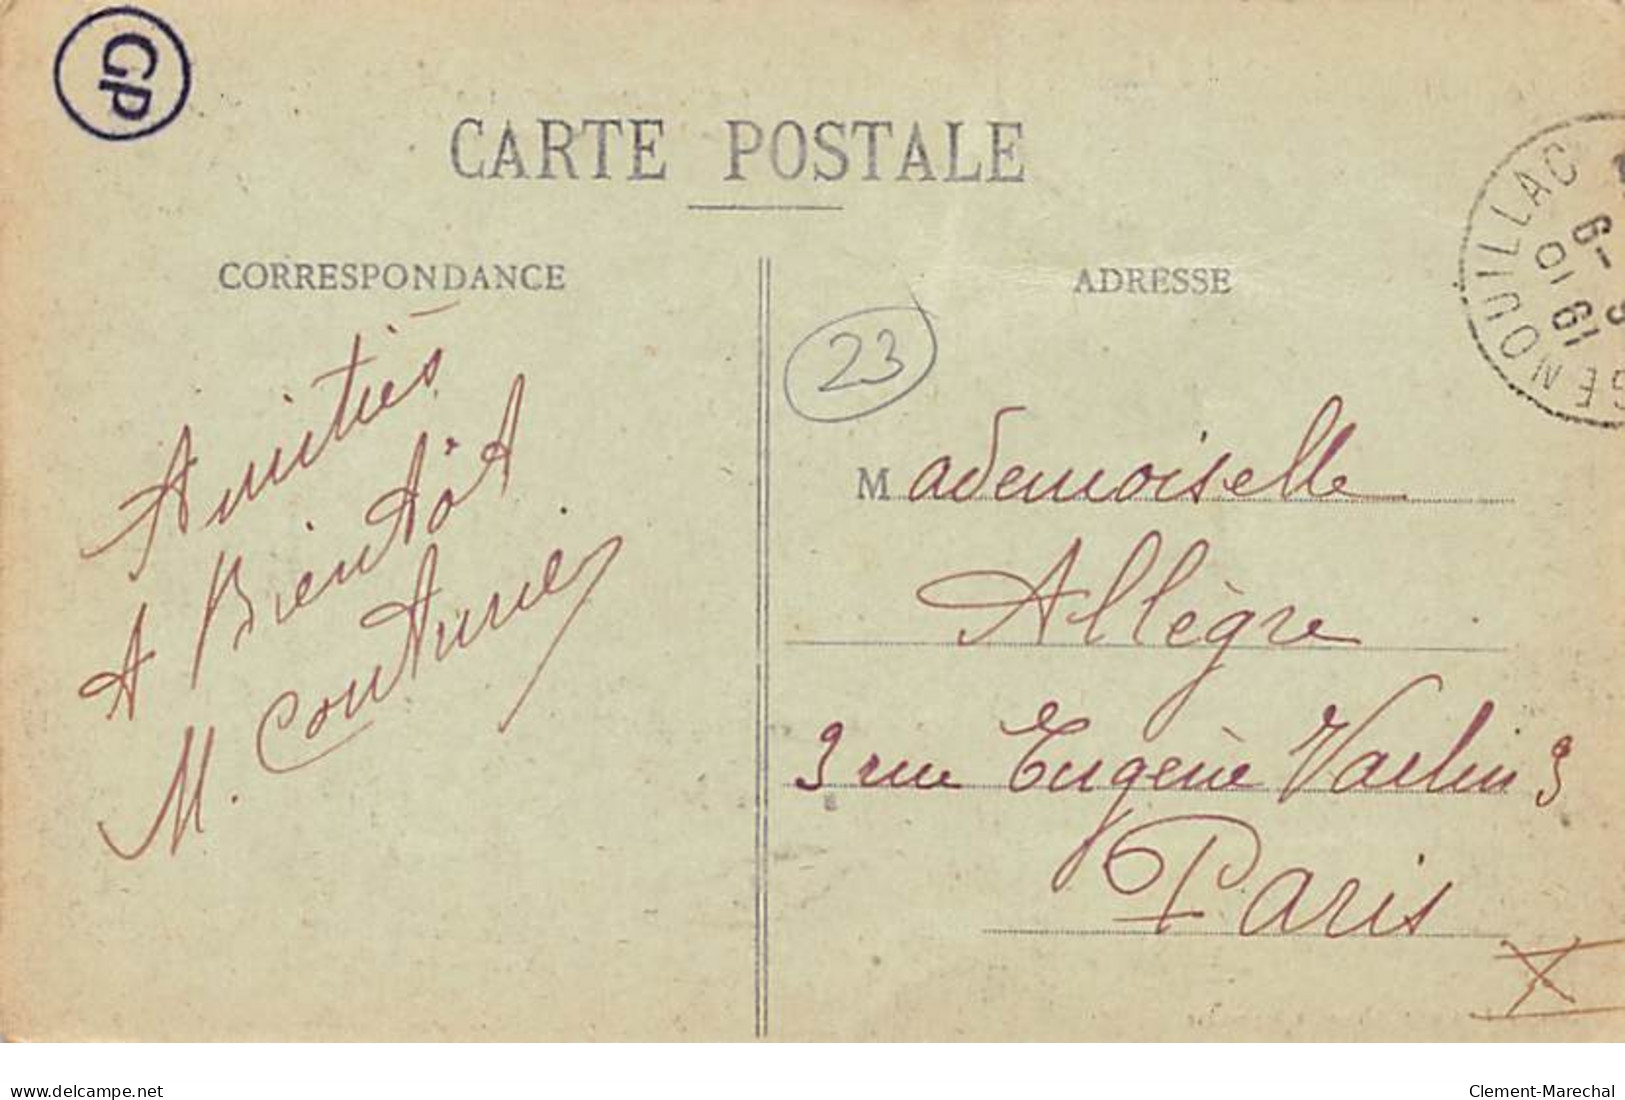 GP
CARTE POSTALE
CORRESPONDANCE
Amitiés
A Bientôt
M. Couturier
ADRESSE
23
GENOUILLAC
6-9
19 10
Mademoiselle
Allègre
3 rue Eugène Varlin 3
Paris
X
delcampe.net
Clement-Marechal